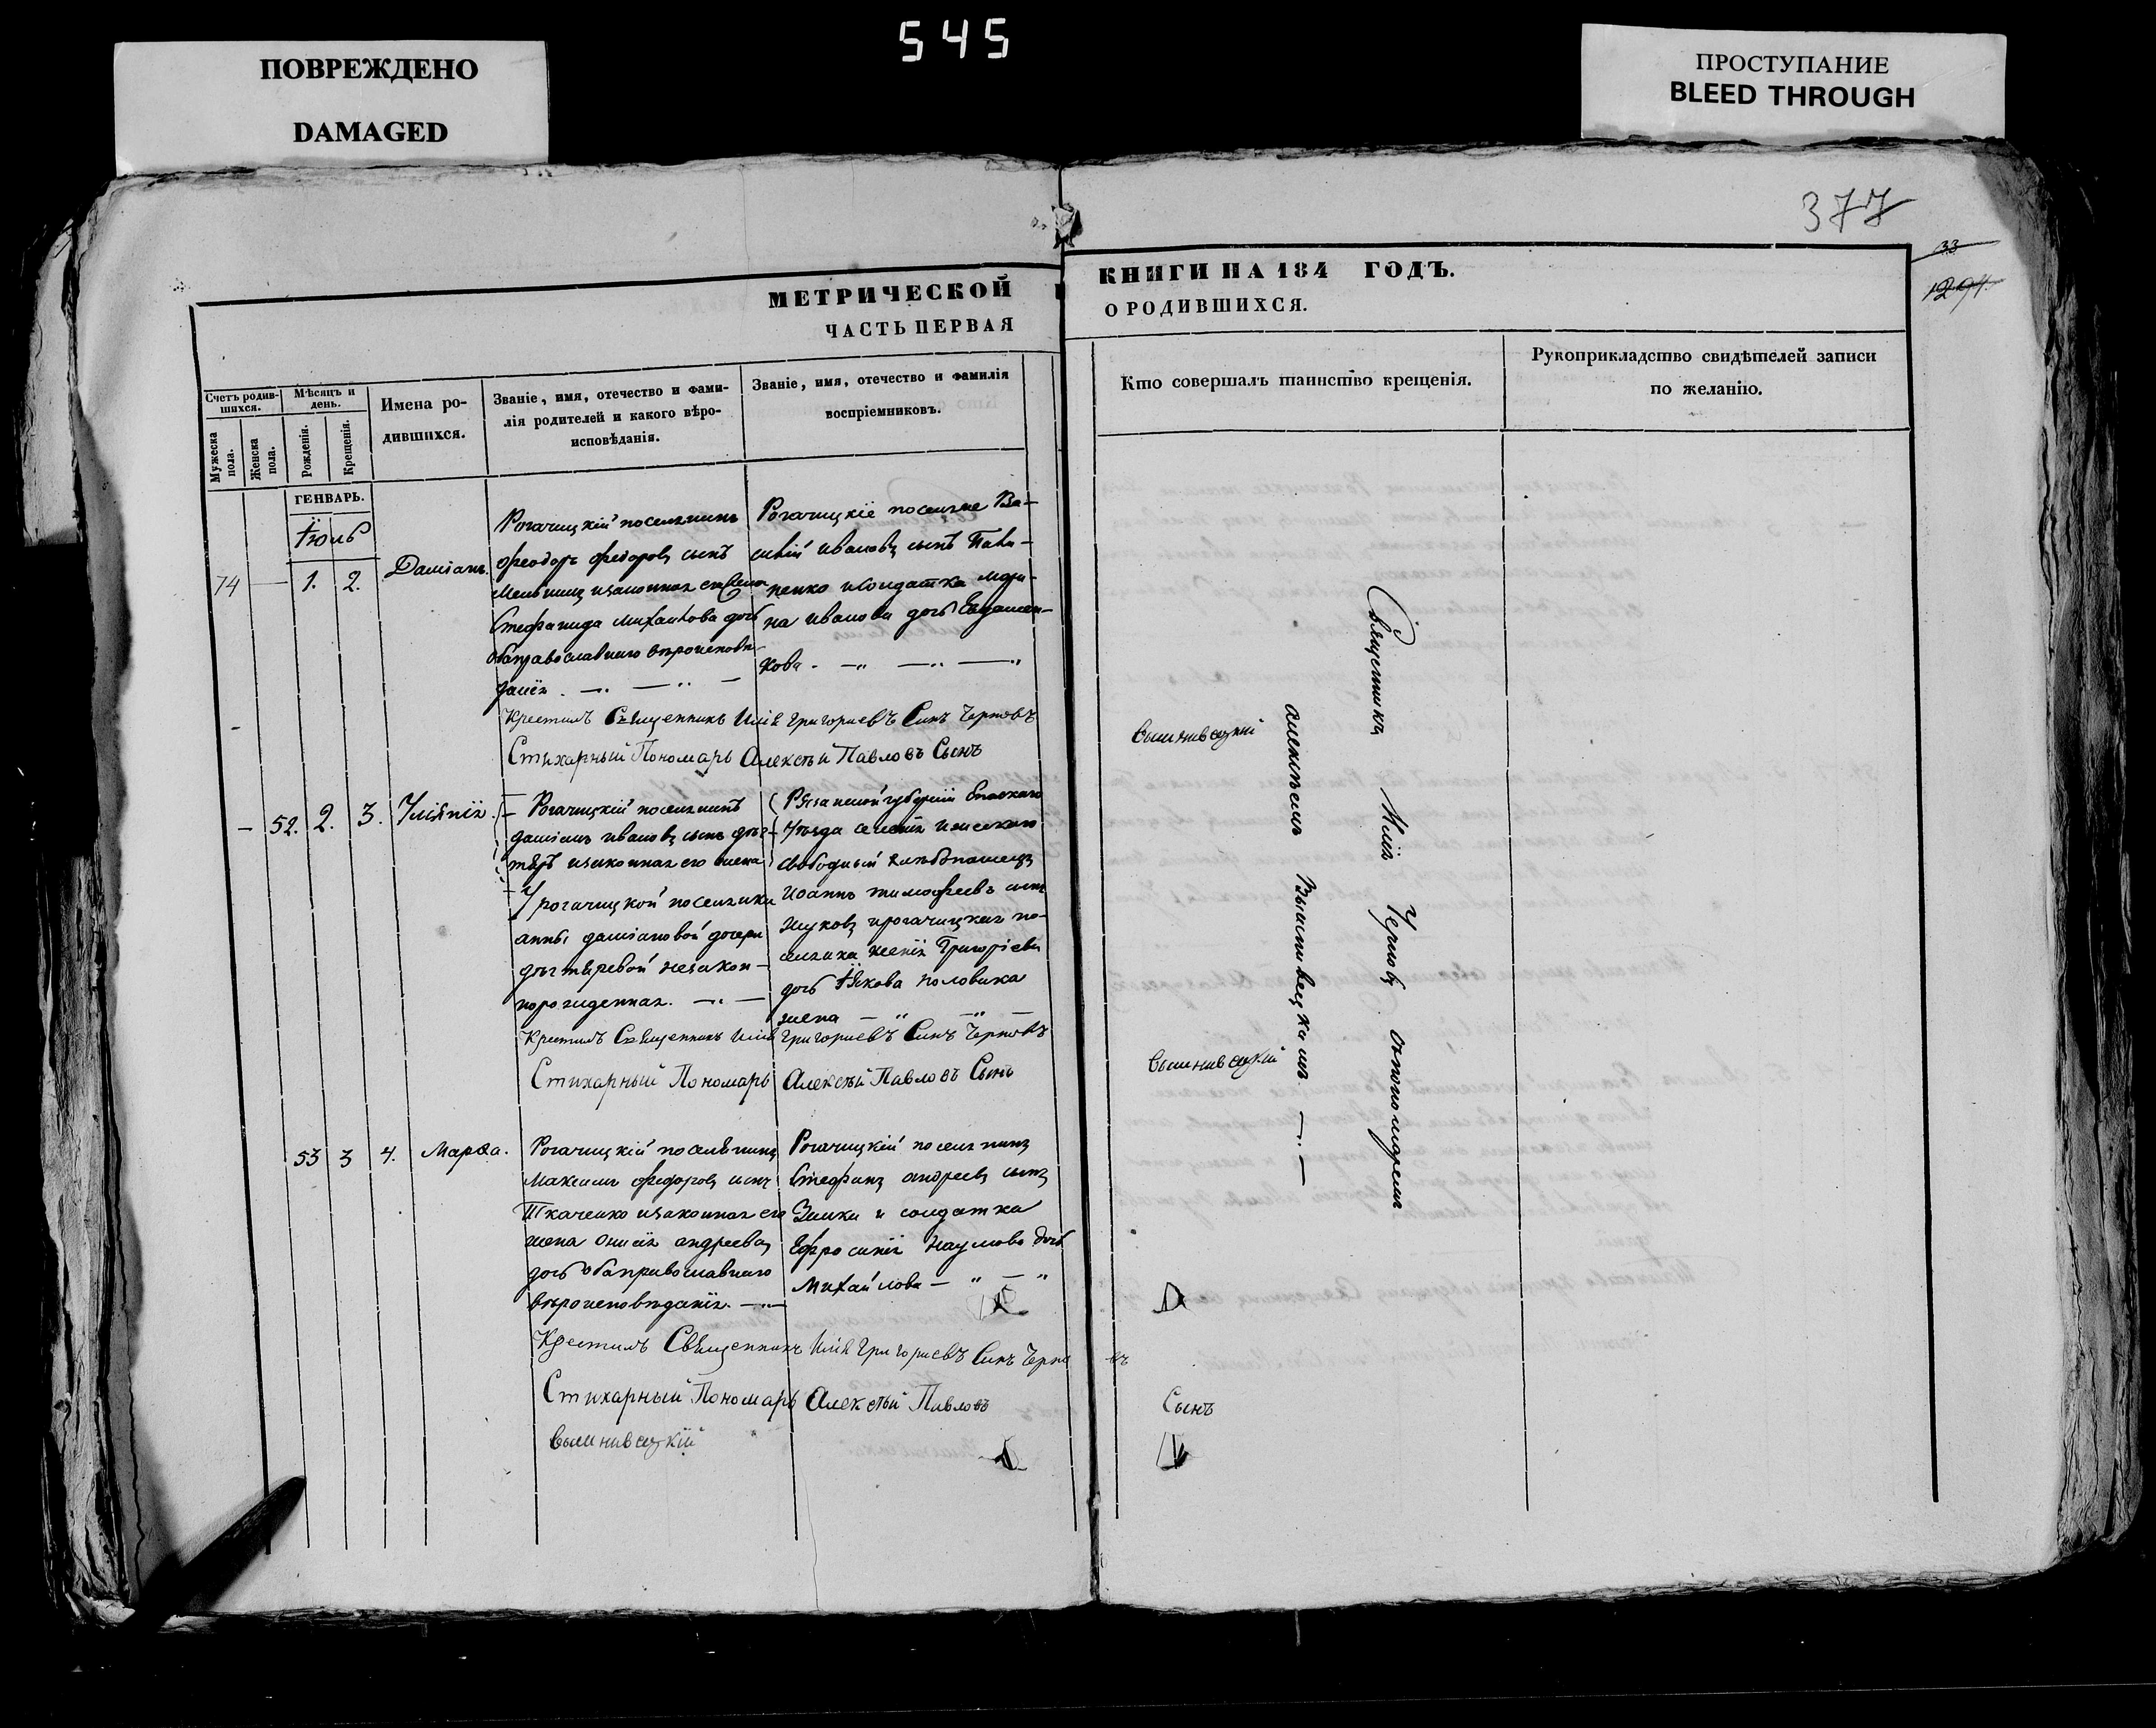 545
ПОВРЕЖДЕНО
DAMAGED
ПРОСТУПАНИЕ
BLEED THROUGH
377
33
1294.
МЕТРИЧЕСКОЙ
ЧАСТЬ ПЕРВАЯ
КНИГИ НА 184 ГОДЪ.
О РОДИВШИХСЯ.
Счетъ родив-
шихся.
Мужеска
пола.
Женска
пола.
Мѣсяцъ и
день.
Рожденія.
Крещенія.
Имена ро-
дившихся.
Званіе, имя, отечество и фами-
лія родителей и какого вѣро-
исповѣданія.
Званіе, имя, отечество и фамилія
воспріемниковъ.
Кто совершалъ таинство крещенія.
Рукоприкладство свидѣтелей записи
по желанію.
ГЕНВАРЬ.
Іюль
74 — 1. 2. Даміанъ.
Рогачицкій поселянинъ
феодоръ федоровъ сынъ
Мельницъ изаконная
Стефанида михайлова дочь
оба православнаго вѣроисповѣ-
данія.
Рогачицкіе поселяне Ва-
силій ивановъ сынъ
ненко исолдатка мари-
на иванова дочь
кова.
Крестилъ Священникъ Илія Григориевъ Синъ Черновъ
Стихарный Пономарь Алексѣй Павловъ Сынъ
вышнивецкій
— 52. 2. 3. Уліянія.
Рогачицкій поселянинъ
даміанъ ивановъ сынъ дѣг-
тярь изаконная его жена
У рогачицкой поселянки
анны даміановой дочери
дѣгтяревой незакон-
норожденная.
Рязанской губерніи Спаскаго
уѣзда селенія ижескаго
свободный хлѣбопашецъ
Иоаннъ тимофеевъ сынъ
Жуковъ ирогачицкая по-
селянка ксенія Григоріева
дочь Іякова половика
жена
Крестилъ Священникъ Илія Григориевъ Синъ Черновъ
Стихарный Пономарь Алексѣй Павловъ Сынъ
вышнивецкій
53 3 4. Марѳа.
Рогачицкій поселянинъ
Максимъ федоровъ сынъ
Ткаченко изаконная его
жена андреева
дочь оба православнаго
вѣроисповѣданія.
Рогачицкій поселянинъ
Стефанъ андреевъ сынъ
Заика и солдатка
Ефросинія Наумова дочь
Михайлова
Крестилъ Священникъ Илія Григориевъ Синъ Черно въ
Стихарный Пономарь Алексѣй Павловъ Сынъ
вышнивецкій
Священникъ Илія Черновъ спономаремъ
алексѣемъ Вышнивецкимъ